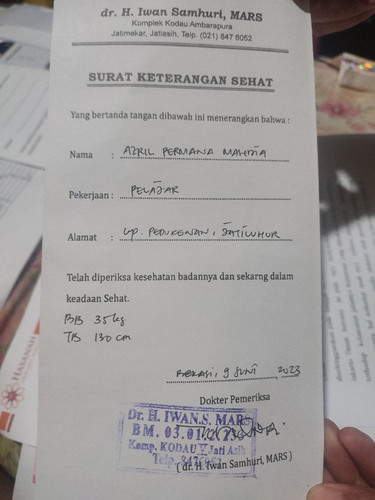 dr. H. Iwan Samhuri, MARS
Komplek Kodau Ambarapura
Jatimekar, Jatiasih, Telp. (021) 847 6052
SURAT KETERANGAN SEHAT
Yang bertanda tangan dibawah ini menerangkan bahwa :
Nama : AZRIL PERMANA MAHDIA
Pekerjaan : PELAJAR
Alamat : Gp. PEDURENAN, JATILUHUR
Telah diperiksa kesehatan badannya dan sekarng dalam
keadaan Sehat.
BB 35 kg
TB 130 cm
BEKASI, 9 JUNI 2023
Dokter Pemeriksa
Dr. H. IWAN.S. MARS
BM. 03.01
Komp. KODAU V Jati Asih
Telp.
( dr. H. Iwan Samhuri, MARS )
HASANAH